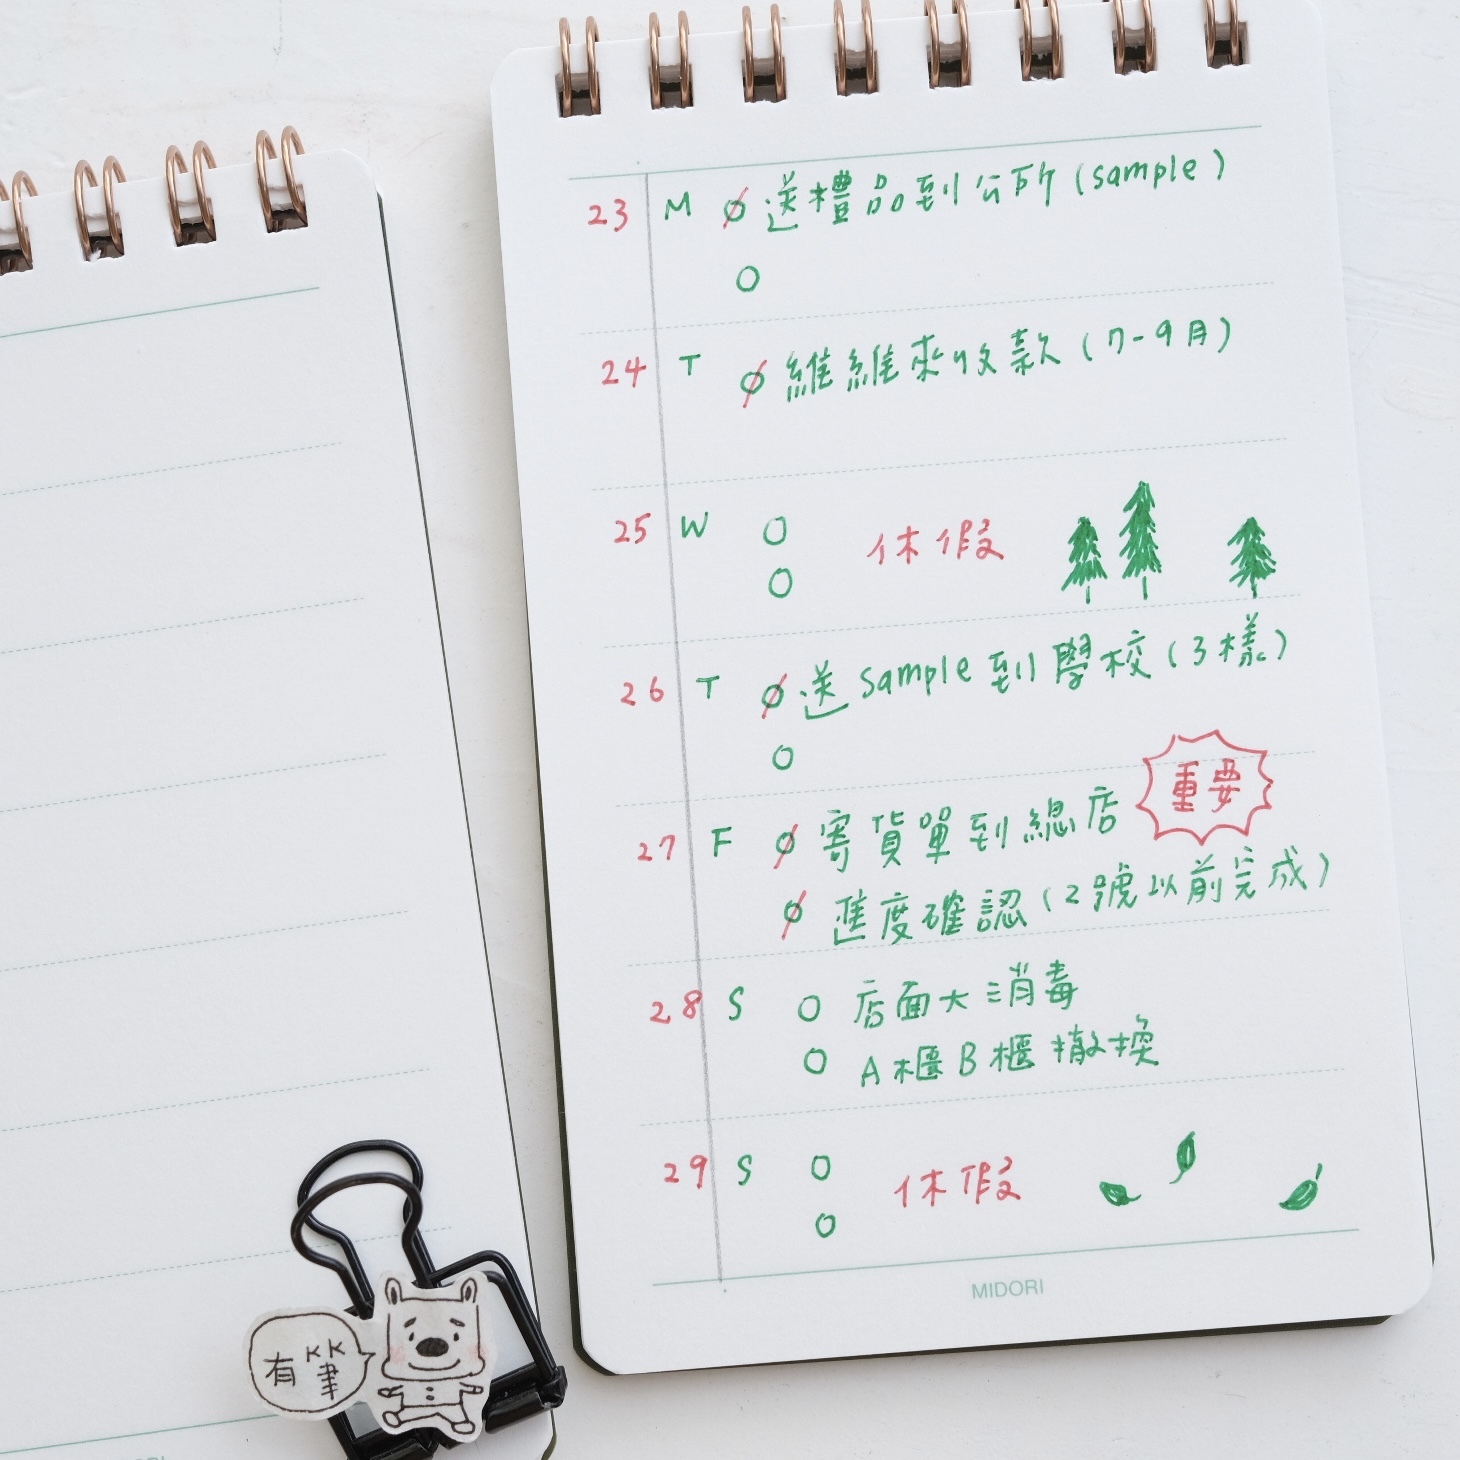 23 M 送禮品到公所(sample)
24 T 維維來收款(7-9月)
25 W 休假
26 T 送sample到學校(3樣)
27 F 寄貨單到總店 重要
進度確認(2號以前完成)
28 S 店面大消毒
A櫃B櫃撤換
29 S 休假
MIDORI
有筆